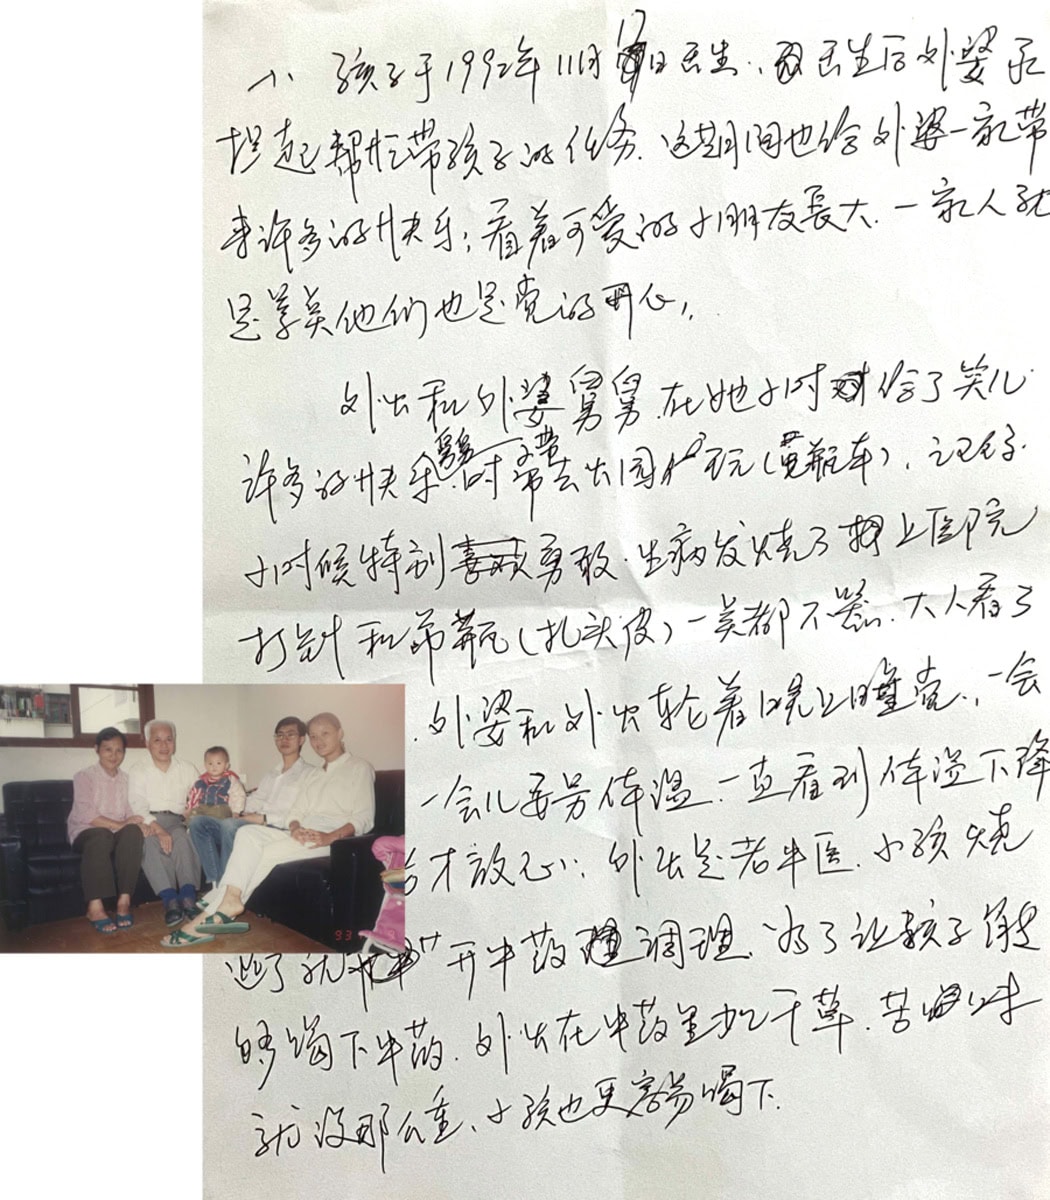 小孩子于1992年11月17日出生.出生后外婆承
担起帮忙带孩子的任务.这期间也给外婆一家带
来许多的快乐;看着可爱的小朋友长大.一家人就
是辛苦他们也是觉的开心.
外公和外婆舅舅.在她小时给了笑儿
许多的快乐.舅舅时常带去公园玩(黄瓶车).记得
小时候特别勇敢.生病发烧了押上医院
打针和吊瓶(扎头皮)一点都不哭.大人看了
外婆和外公轮着晚上睡觉.一会
一会儿要另体温.一直看到体温下降
才放心;外公是老中医.小孩烧
退了就开中药调理.为了让孩子能
够喝下中药.外公在中药里加干草.苦味
就没那么重.小孩也更容易喝下.
93